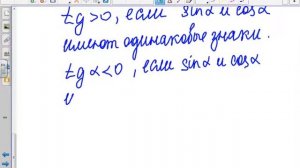 tg>0, если sinα и cosα
имеют одинаковые знаки.
tgα<0, если sinα и cosα
и